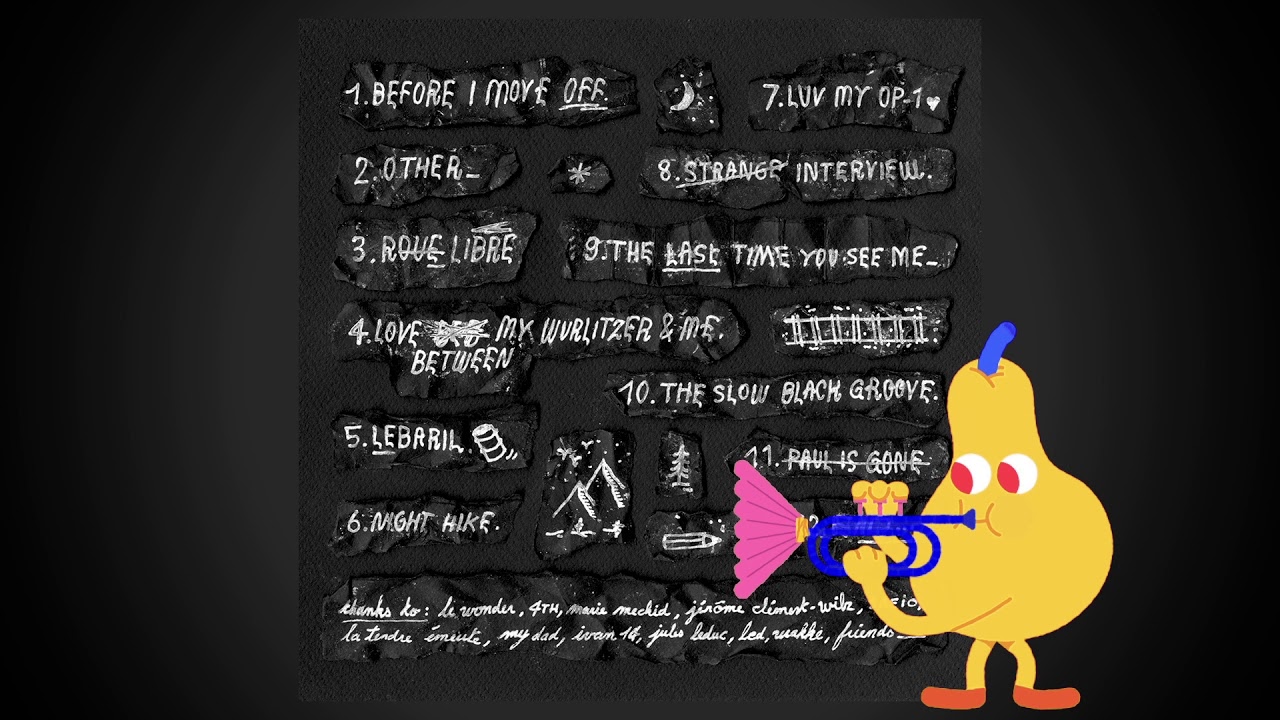 1. BEFORE I MOVE OFF.
2. OTHER_
3. ROUE LIBRE
4. LOVE MY WURLITZER & ME.
BETWEEN
5. LEBARIL.
6. NIGHT HIKE.
7. LUV MY OP-1 ♥
8. STRANGE INTERVIEW.
9. THE LAST TIME YOU SEE ME_
10. THE SLOW BLACK GROOVE.
11. PAUL IS GONE
thanks to: le wonder, 4TH, marie mechid, jérôme clément-wilz,
la tendre émeute, my dad, ivan 1G, jules leduc, led, friends